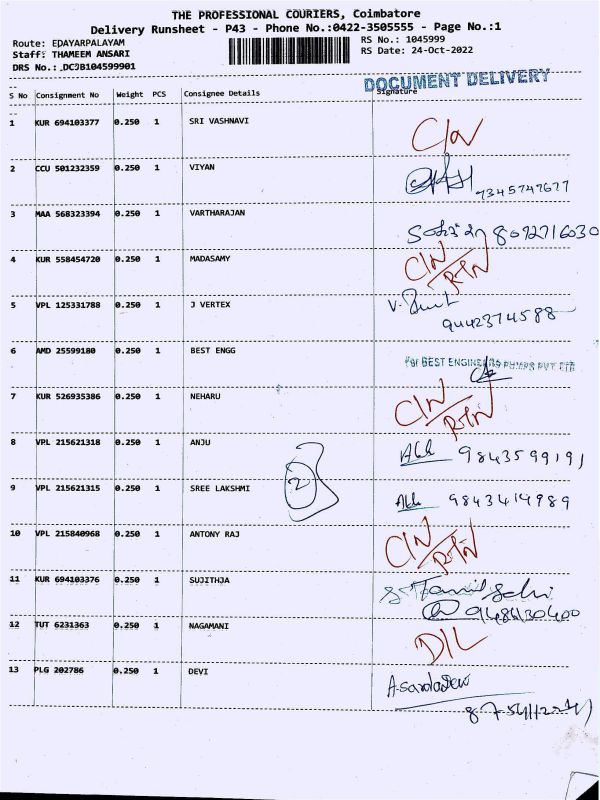 THE PROFESSIONAL COURIERS, Coimbatore
Delivery Runsheet - P43 - Phone No.:0422-3505555 - Page No.:1
Route: EDAYARPALAYAM
RS No.: 1045999
Staff: THAMEEM ANSARI
RS Date: 24-Oct-2022
DRS No.: DCJB104599901
DOCUMENT DELIVERY
S No Consignment No Weight PCS Consignee Details Signature
1 KUR 694103377 0.250 1 SRI VASHNAVI
2 CCU 501232359 0.250 1 VIYAN 7345747677
3 MAA 568323394 0.250 1 VARTHARAJAN 8092716030
4 KUR 558454720 0.250 1 MADASAMY C/N RTN
5 VPL 125331788 0.250 1 J VERTEX 9442374588
6 AMD 25599180 0.250 1 BEST ENGG For BEST ENGINEERS PUMPS PVT LTD
7 KUR 526935386 0.250 1 NEHARU C/N RTN
8 VPL 215621318 0.250 1 ANJU 9843599191
9 VPL 215621315 0.250 1 SREE LAKSHMI 2 9843414989
10 VPL 215840968 0.250 1 ANTONY RAJ C/N RTN
11 KUR 694103376 0.250 1 SUJITHJA
12 TUT 6231363 0.250 1 NAGAMANI D/L
13 PLG 202786 0.250 1 DEVI